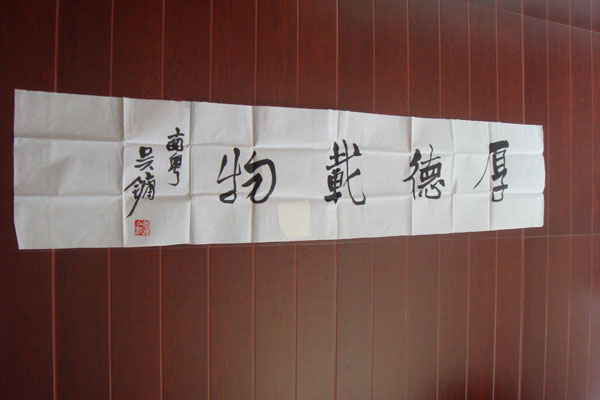 厚德載物
南粤
吴鏞